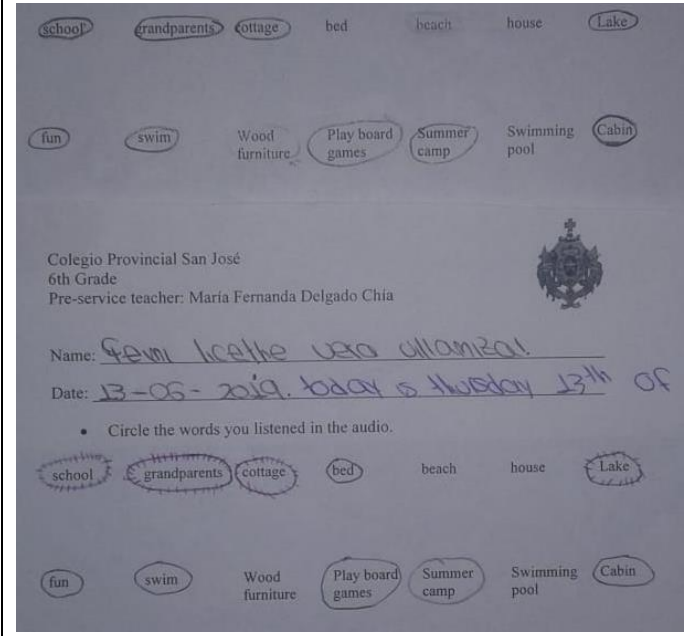 school grandparents cottage bed beach house Lake
fun swim Wood furniture Play board games Summer camp Swimming pool Cabin
Colegio Provincial San José
6th Grade
Pre-service teacher: María Fernanda Delgado Chía
Name: licethe vera
Date: 13-06-2019. today is thursday 13th OF
• Circle the words you listened in the audio.
school grandparents cottage bed beach house Lake
fun swim Wood furniture Play board games Summer camp Swimming pool Cabin